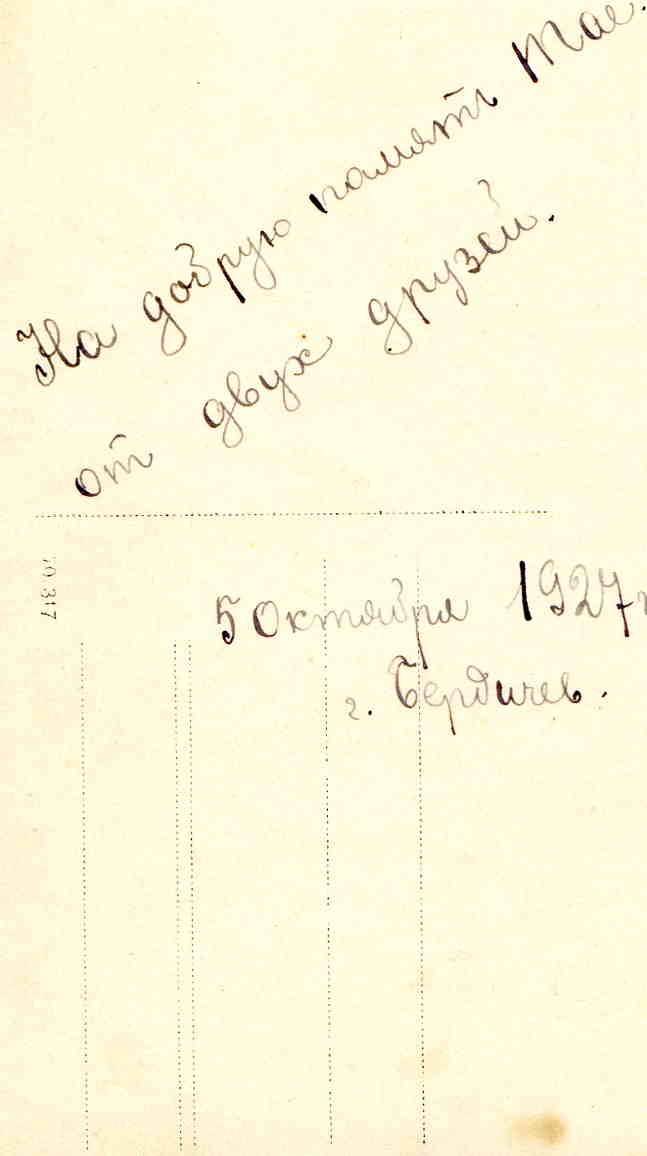 На добрую память Тае.
от двух друзей.
5 Октября 1927 г
г. Бердичев.
70 317